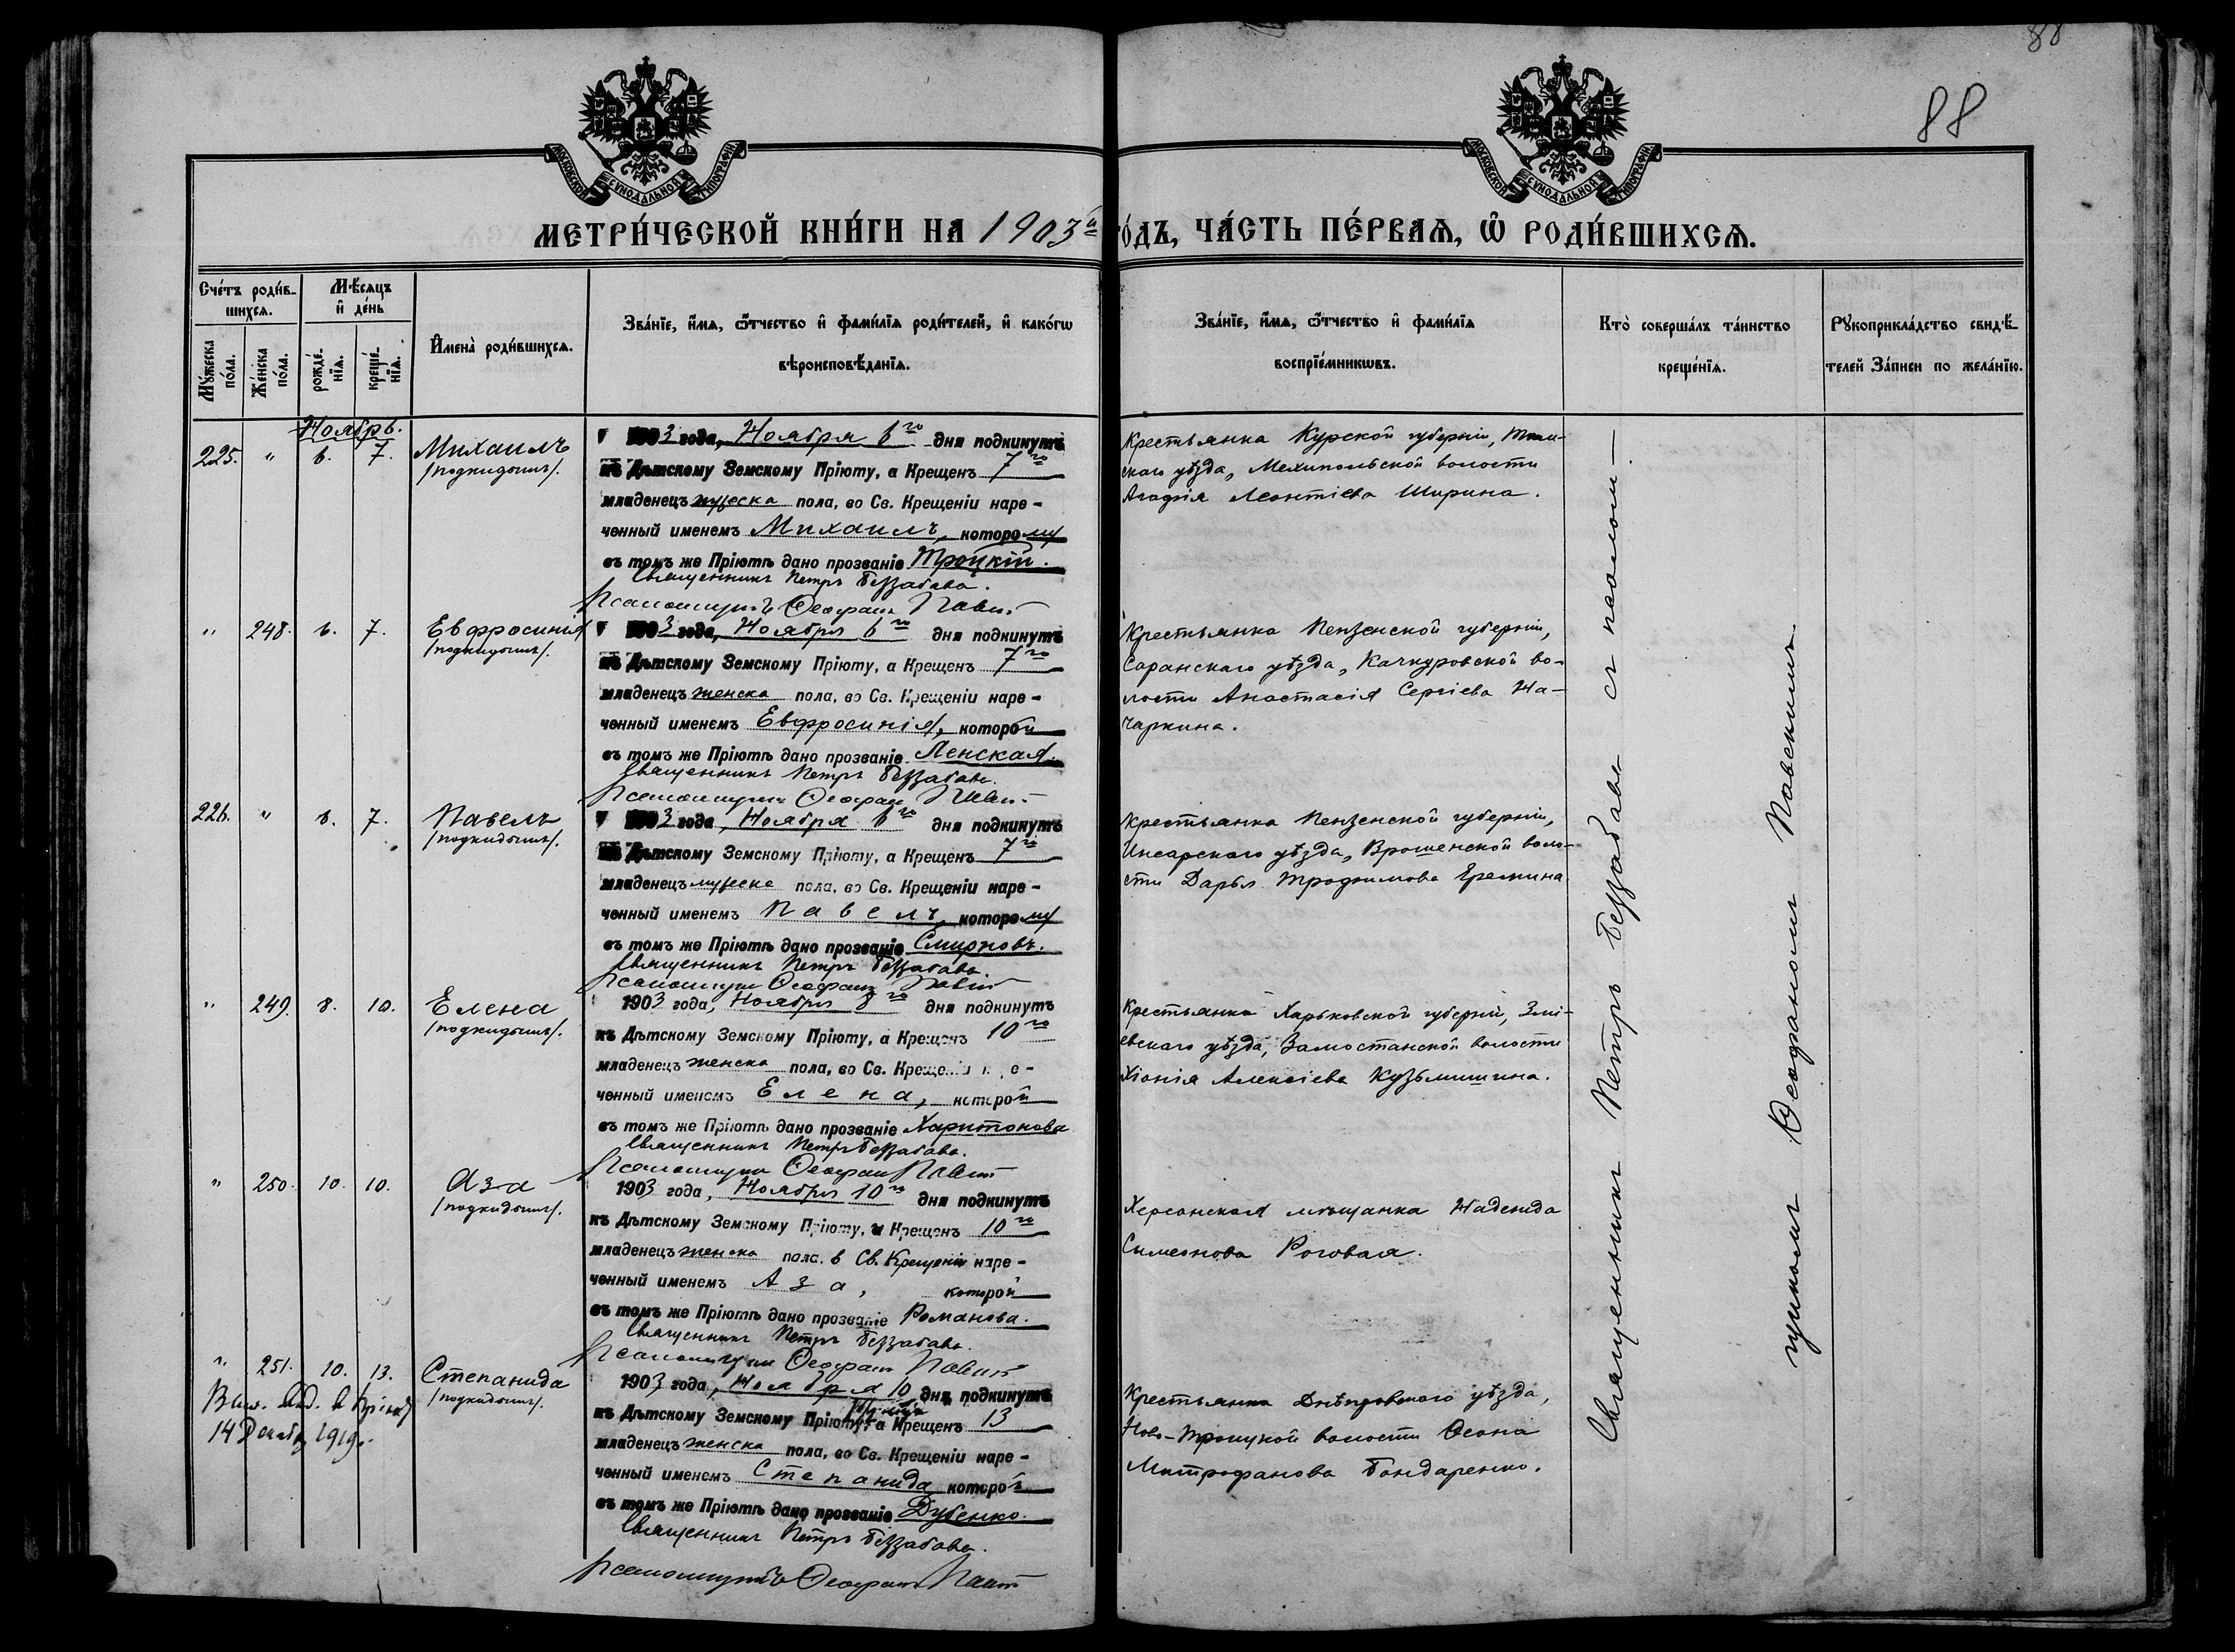 88
88
МОСКОВСКОЙ СУНОДАЛЬНОЙ ТИПОГРАФІИ
МОСКОВСКОЙ СУНОДАЛЬНОЙ ТИПОГРАФІИ
МЕТРИ́ЧЕСКОЙ КНИ́ГИ НА 1903й
го́дъ, ЧА́СТЬ ПЕ́РВАѦ, Ѡ҆ РОДИ́ВШИХСѦ.
Сче́тъ роди́в-
шихсѧ.
Мѣ́сѧцъ
и҆ де́нь
Мꙋ́жеска
по́ла.
Же́нска
по́ла.
рожде́-
нїѧ.
креще́-
нїѧ.
И҆мена̀ роди́вшихсѧ.
Зва́нїе, и҆́мѧ, ѻ҆́тчество и҆ фами́лїѧ роди́телей, и҆ како́гѡ
вѣроисповѣ́данїѧ.
Зва́нїе, и҆́мѧ, ѻ҆́тчество и҆ фами́лїѧ
воспрїе́мникѡвъ.
Кто̀ соверша́лъ та́инство
креще́нїѧ.
Рꙋкоприкла́дство свидѣ́-
телей За́писи по жела́нїю.
Ноябрь.
225. " 6. 7. Михаилъ
/подкидышъ/.
1903 года, Ноября 6го дня подкинутъ
къ Дѣтскому Земскому Пріюту, а Крещенъ 7го
младенецъ мужеска пола, во Св. Крещеніи наре-
ченный именемъ Михаилъ, которому
въ томъ же Пріютѣ дано прозваніе Троцкій.
Священникъ Петръ Беззабава.
Псаломщикъ Ѳеофанъ
Крестьянка Курской губерніи,
скаго уѣзда, волости
Агафія Леонтіева Ширина.
" 248. 6. 7. Евфросинія
/подкидышъ/.
1903 года, Ноября 6го дня подкинутъ
къ Дѣтскому Земскому Пріюту, а Крещенъ 7го
младенецъ женска пола, во Св. Крещеніи наре-
ченный именемъ Евфросинія, которой
въ томъ же Пріютѣ дано прозваніе Ленская.
Священникъ Петръ Беззабава.
Псаломщикъ Ѳеофанъ
Крестьянка Пензенской губерніи,
Саранскаго уѣзда, Качкуровской во-
лости Анастасія Сергіева На-
чаркина.
226. " 6. 7. Павелъ
/подкидышъ/.
1903 года, Ноября 6го дня подкинутъ
къ Дѣтскому Земскому Пріюту, а Крещенъ 7го
младенецъ мужеска пола, во Св. Крещеніи наре-
ченный именемъ Павелъ, которому
въ томъ же Пріютѣ дано прозваніе Смирновъ.
Священникъ Петръ Беззабава.
Псаломщикъ Ѳеофанъ
Крестьянка Пензенской губерніи,
Инсарскаго уѣзда, воло-
сти Дарья Трофимова Еремина
" 249. 8. 10. Елена
/подкидышъ/.
1903 года, Ноября 8го дня подкинутъ
къ Дѣтскому Земскому Пріюту, а Крещенъ 10го
младенецъ женска пола, во Св. Крещеніи наре-
ченный именемъ Елена, которой
въ томъ же Пріютѣ дано прозваніе Харитонова
Священникъ Петръ Беззабава.
Псаломщикъ Ѳеофанъ
Крестьянка Харьковской губерніи, Змі-
евскаго уѣзда, Замостанской волости
Хіонія Алексіева Кузьмишина.
" 250. 10. 10. Аза
/подкидышъ/.
1903 года, Ноября 10го дня подкинутъ
къ Дѣтскому Земскому Пріюту, и Крещенъ 10го
младенецъ женска пола, в Св. Крещеніи наре-
ченный именемъ Аза, которой
въ томъ же Пріютѣ дано прозваніе Романова.
Священникъ Петръ Беззабава.
Псаломщикъ Ѳеофанъ
Херсонская мѣщанка Надежда
Симеонова Роговая.
" 251. 10. 13. Степанида
/подкидышъ/.
14 Декабр 1919г.
1903 года, Ноября 10 дня подкинутъ
къ Дѣтскому Земскому Пріюту, а Крещенъ 13
младенецъ женска пола, во Св. Крещеніи наре-
ченный именемъ Степанида которой
въ томъ же Пріютѣ дано прозваніе Дубенко.
Священникъ Петръ Беззабава.
Псаломщикъ Ѳеофанъ
Крестьянка Днѣпровскаго уѣзда,
Ново-Троицкой волости
Митрофанова Бондаренко.
Священникъ Петръ Беззабава съ псалом-
щикомъ Ѳеофаномъ Павскимъ.